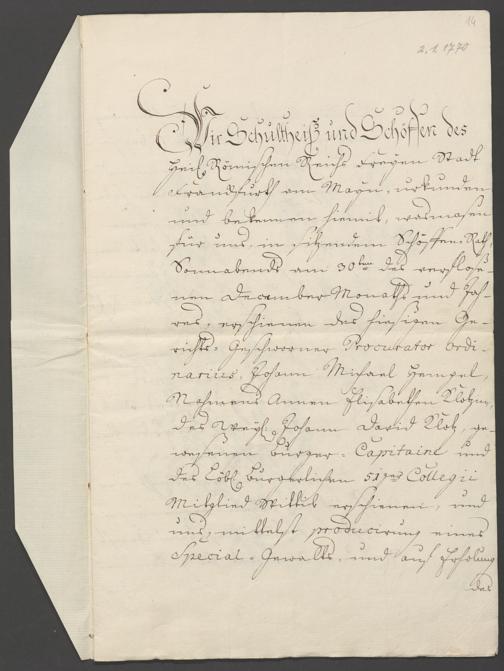 14
2.1.1770
Wir Schultheiß und Schöffen des
Heil. Römischen Reichs Freyen Stadt
Franckfurth am Mayn, urkunden
und bekennen hiemit, wasmasen
für uns, in sitzendem Schöffen-Rath,
Sonnabends am 30ten des verfloße-
nen December Monaths und Jah-
res, erschienen des hiesigen Ge-
richts-Geschworner Procurator Ordi-
narius, Johann Michael Hempel,
Nahmens Annen Elisabethen Klotzin,
des Weyl. Johann David Klotz, ge-
wesenen Bürger-Capitaine und
des Löbl. bürgerlichen 51gr Collegii
Mitglied Wittib erschienen, und
uns, mittelst producirung eines
Special-Gewalts, und auf Erholung
des